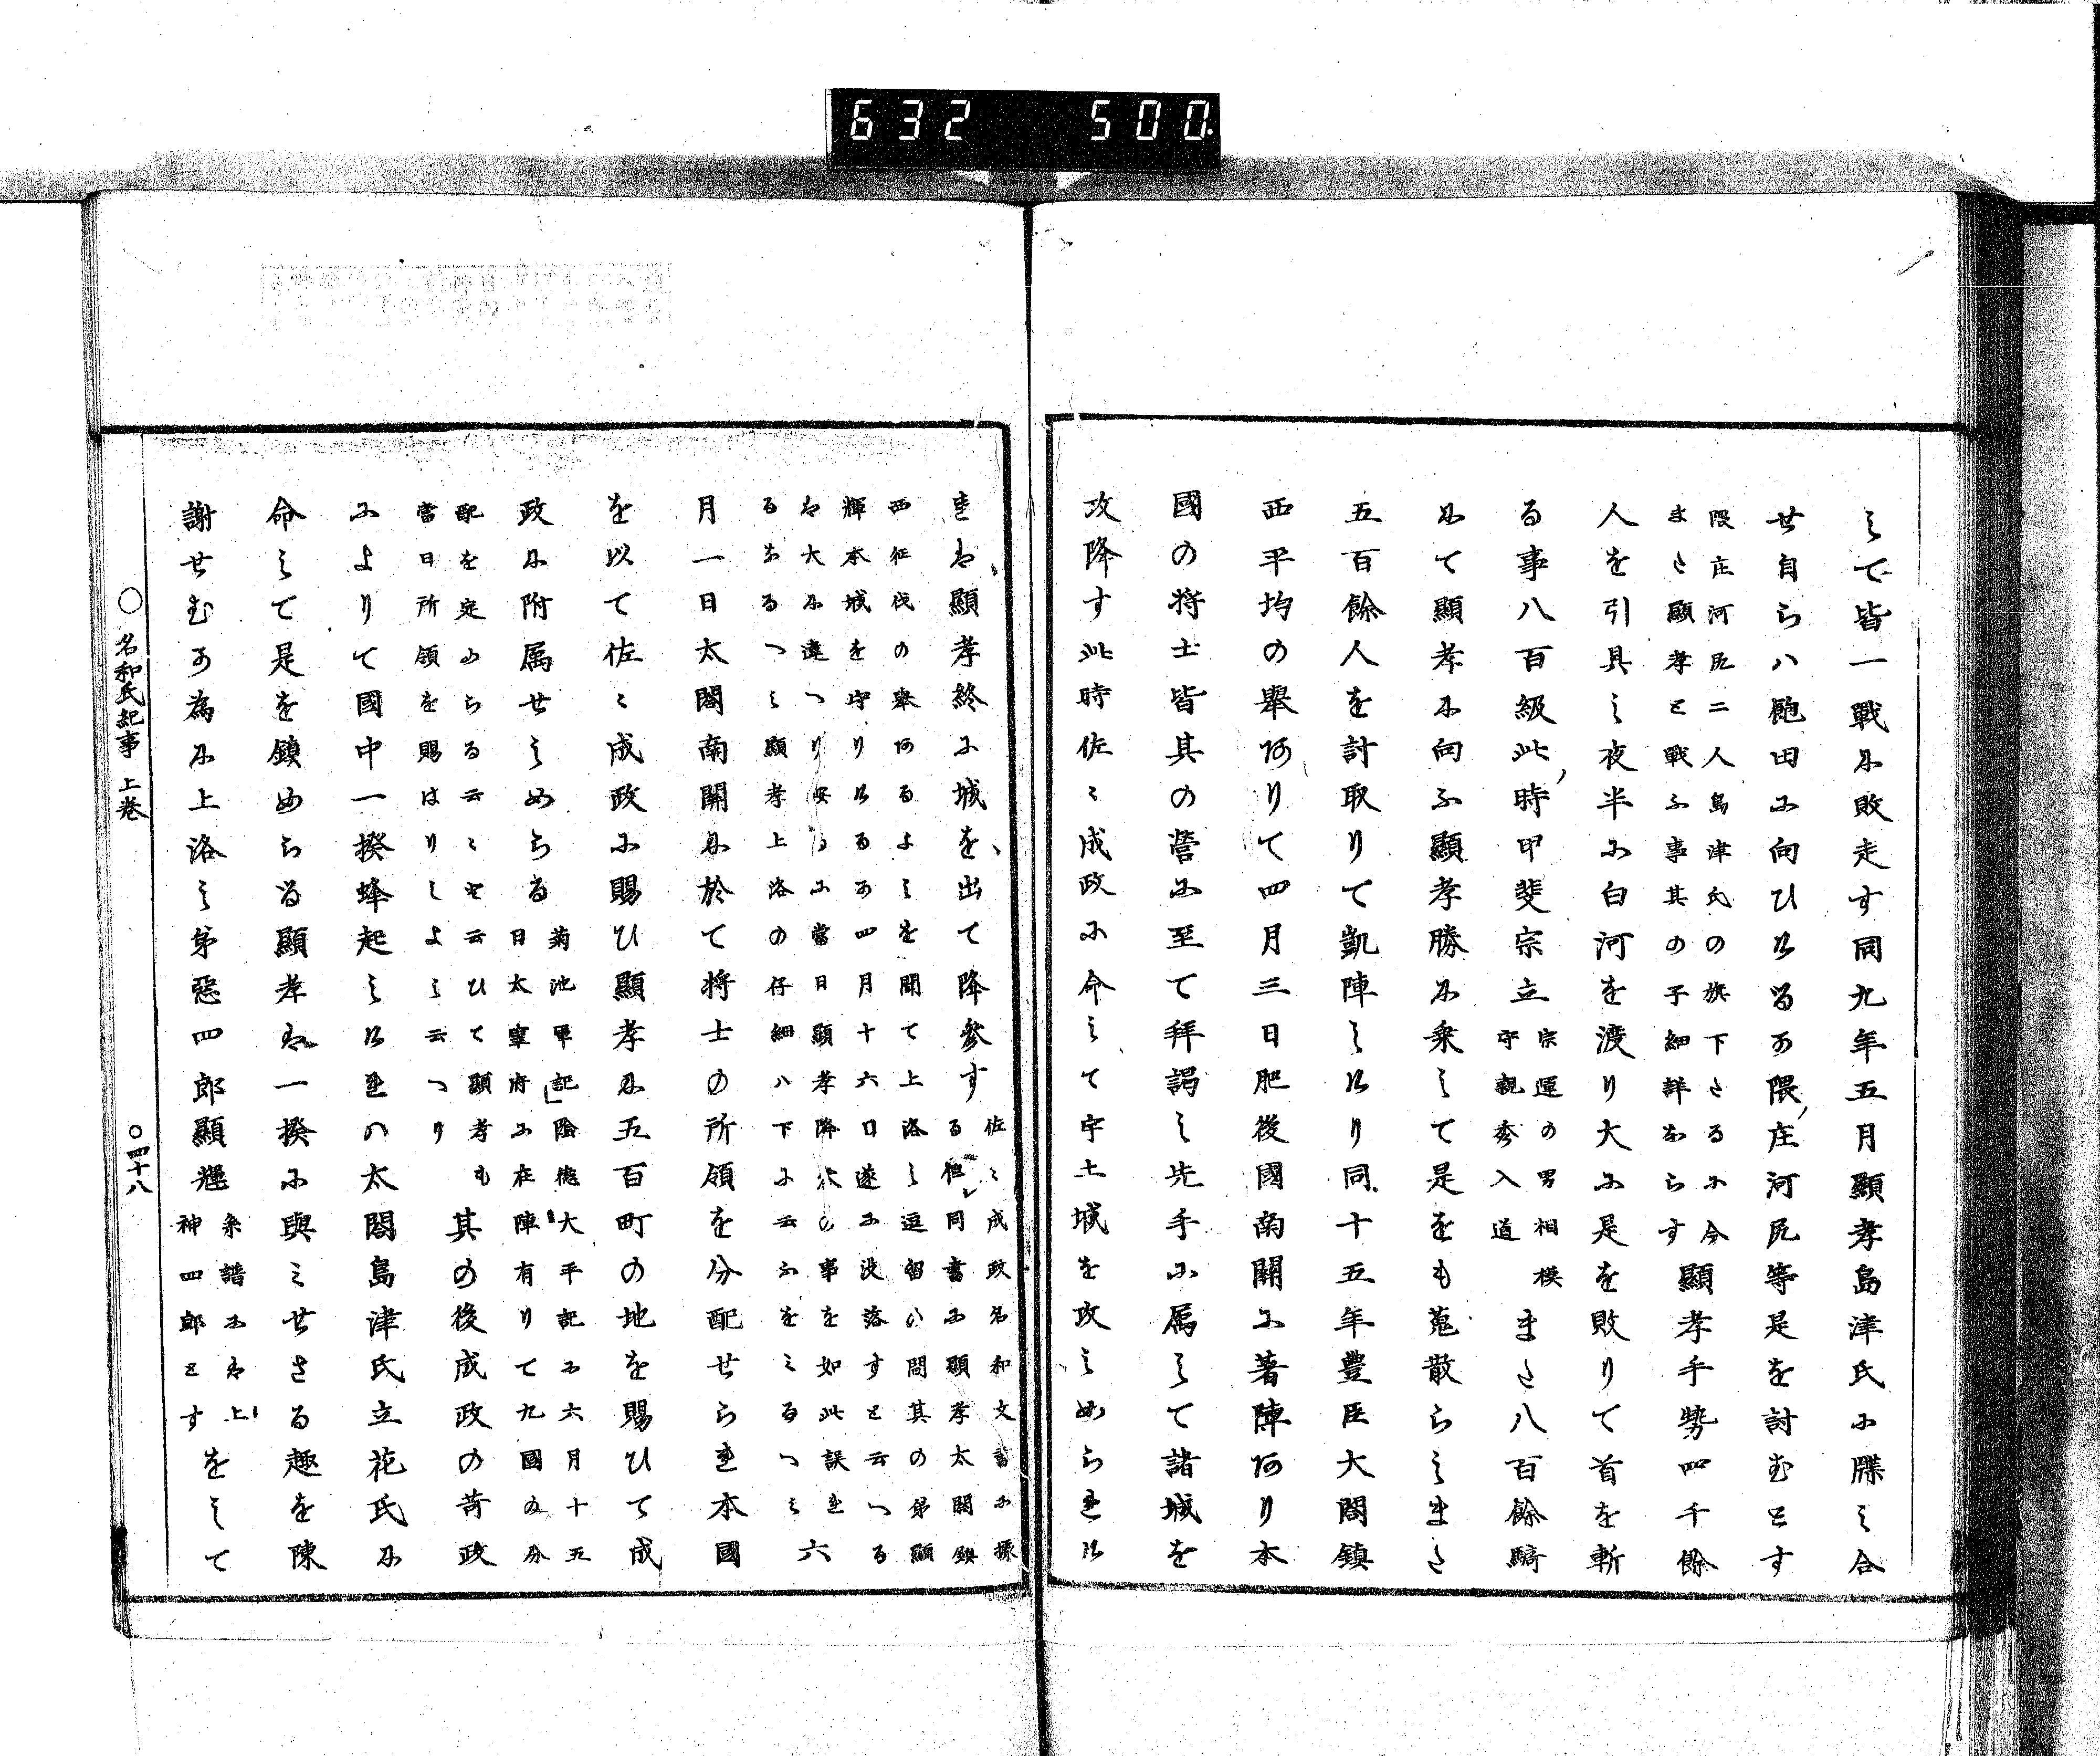 632 500
して皆一戰に敗走す同九年五月顯孝島津氏に牒し合
せ自らハ飽田に向ひけるか隈庄河尻等是を討むとす
隈庄河尻二人島津氏の旗下たるに今
また顯孝と戰ふ事其の子細詳ならす
顯孝手勢四千餘
人を引具し夜半に白河を渡り大に是を敗りて首を斬
る事八百級此時甲斐宗立
宗運の男相模
守親秀入道
また八百餘騎
にて顯孝に向ふ顯孝勝に乗して是をも蒐散らしまた
五百餘人を討取りて凱陣しけり同十五年豊臣大閤鎮
西平均の舉ありて四月三日肥後國南關に著陣あり本
國の將士皆其の營に至て拜謁し先手に属して諸城を
攻降す此時佐々成政に命して宇土城を攻しめられけ
れは顯孝終に城を出て降參す
佐々成政名和文書に據
る但し同書に顯孝太閤鎮
西征伐の舉あるよしを聞て上洛し逗留の間其の弟顯
輝本城を守りけるか四月十六日遂に没落すと云へる
は大に違へり
當日顯孝降
の事を如此誤れ
るなるへし顯孝上洛の仔細ハ下に云ふをみるへし
六
月一日太閤南關に於て將士の所領を分配せられ本國
を以て佐々成政に賜ひ顯孝に五百町の地を賜ひて成
政に附属せしめらる
菊池軍記陰徳大平記に六月十五
日太宰府に在陣有りて九國の分
配を定めらる云々と云ひて顯孝も
當日所領を賜はりしよし云へり
其の後成政の苛政
によりて國中一揆蜂起しけれの太閤島津氏立花氏に
命して是を鎮めらる顯孝は一揆に與みせさる趣を陳
謝せむか為に上洛し弟惡四郎顯輝
系譜には上
神四郎とす
をして
○名和氏紀事 上巻
○四十八